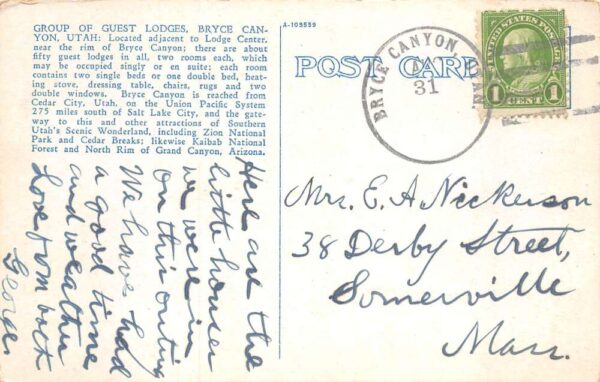 GROUP OF GUEST LODGES, BRYCE CAN-
YON, UTAH: Located adjacent to Lodge Center,
near the rim of Bryce Canyon; there are about
fifty guest lodges in all, two rooms each, which
may be occupied singly or en suite; each room
contains two single beds or one double bed, heat-
ing stove, dressing table, chairs, rugs and two
double windows. Bryce Canyon is reached from
Cedar City, Utah, on the Union Pacific System
275 miles south of Salt Lake City, and the gate-
way to this and other attractions of Southern
Utah's Scenic Wonderland, including Zion National
Park and Cedar Breaks; likewise Kaibab National
Forest and North Rim of Grand Canyon, Arizona.
A-103559
POST CARD
BRYCE CANYON, UTAH
31
UNITED STATES POSTAGE
1 CENT 1
Here are the
little houses
we were in
on this outing
We have had
a good time
and weather
Love from both
Mrs. E. A Nickerson
38 Derby Street,
Somerville
Mass.